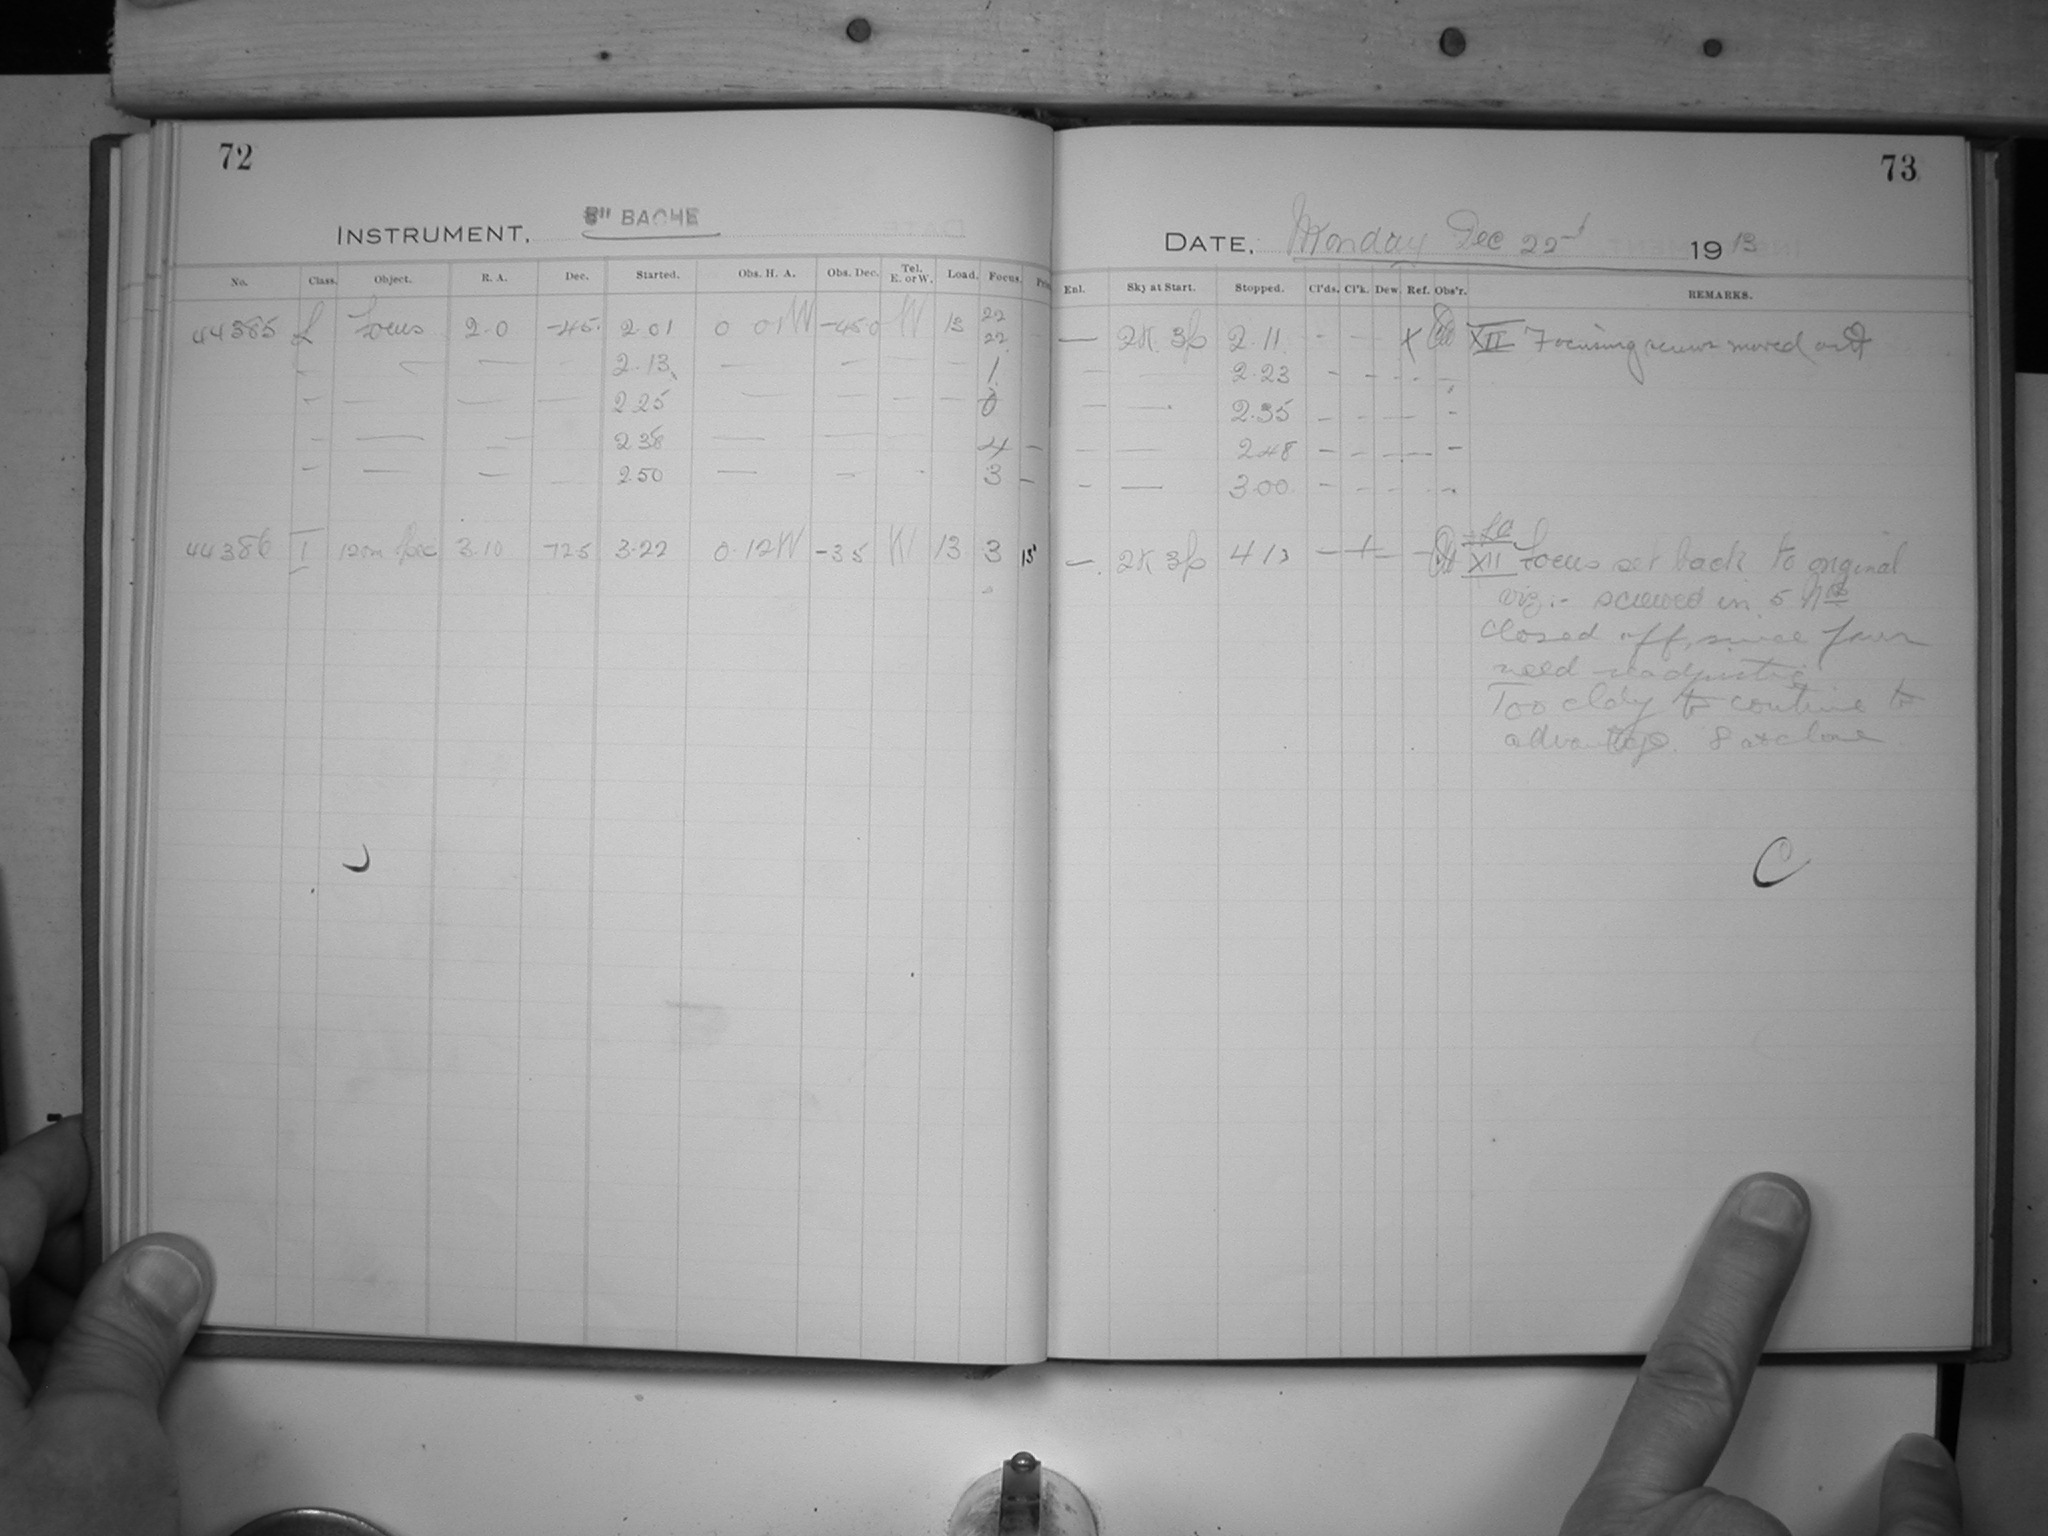 72
73
INSTRUMENT, 8" BACHE
DATE, Monday Dec 22nd 1913
No. Class. Object. R. A. Dec. Started. Obs. H. A. Obs. Dec. Tel. E. or W. Load. Focus.
Enl. Sky at Start. Stopped. Cl'ds. Cl'k. Dew. Ref. Obs'r. REMARKS.
44385 L Focus 2.0 -45 2.01 0 01 W -45.0 W 13 22
22
— 2K 3p 2.11 - — X XII Focusing screws moved out
- — — 2.13 — — 1
— — 2.23 - - - -
- — — — 2 25 — — — — 0
— — 2.35 - - — -
- — — 2 38 — — — 4 -
- — 2 48 - - - — -
- — — - 2.50 — - - 3 -
- — 3.00 - - - - -
44386 I 12m 3.10 -72.5 3.22 0.12 W -35 W 13 3 15'
— 2K 3p 4 13 — + — - XII Focus set back to original
viz:- screwed in 5
closed off, since
need readjusting
Too cldy to continue to
advantage. 8 at close
C